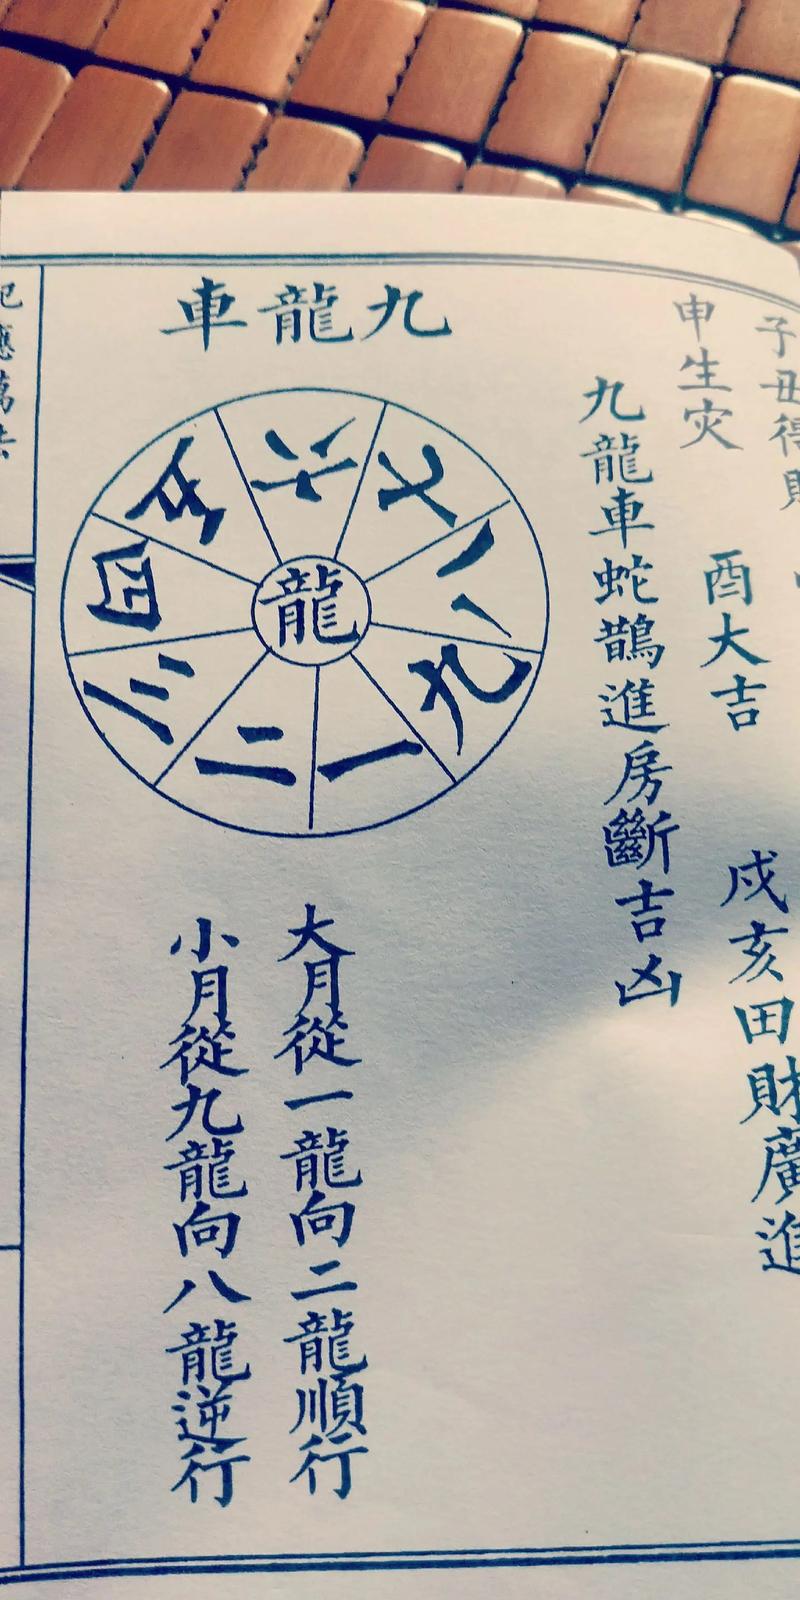 子丑得財
申生灾
酉大吉
戌亥田財廣進
九龍車蛇鵲進房斷吉凶
九龍車
龍
一
二
三
四
五
六
七
八
九
大月從一龍向二龍順行
小月從九龍向八龍逆行
應萬